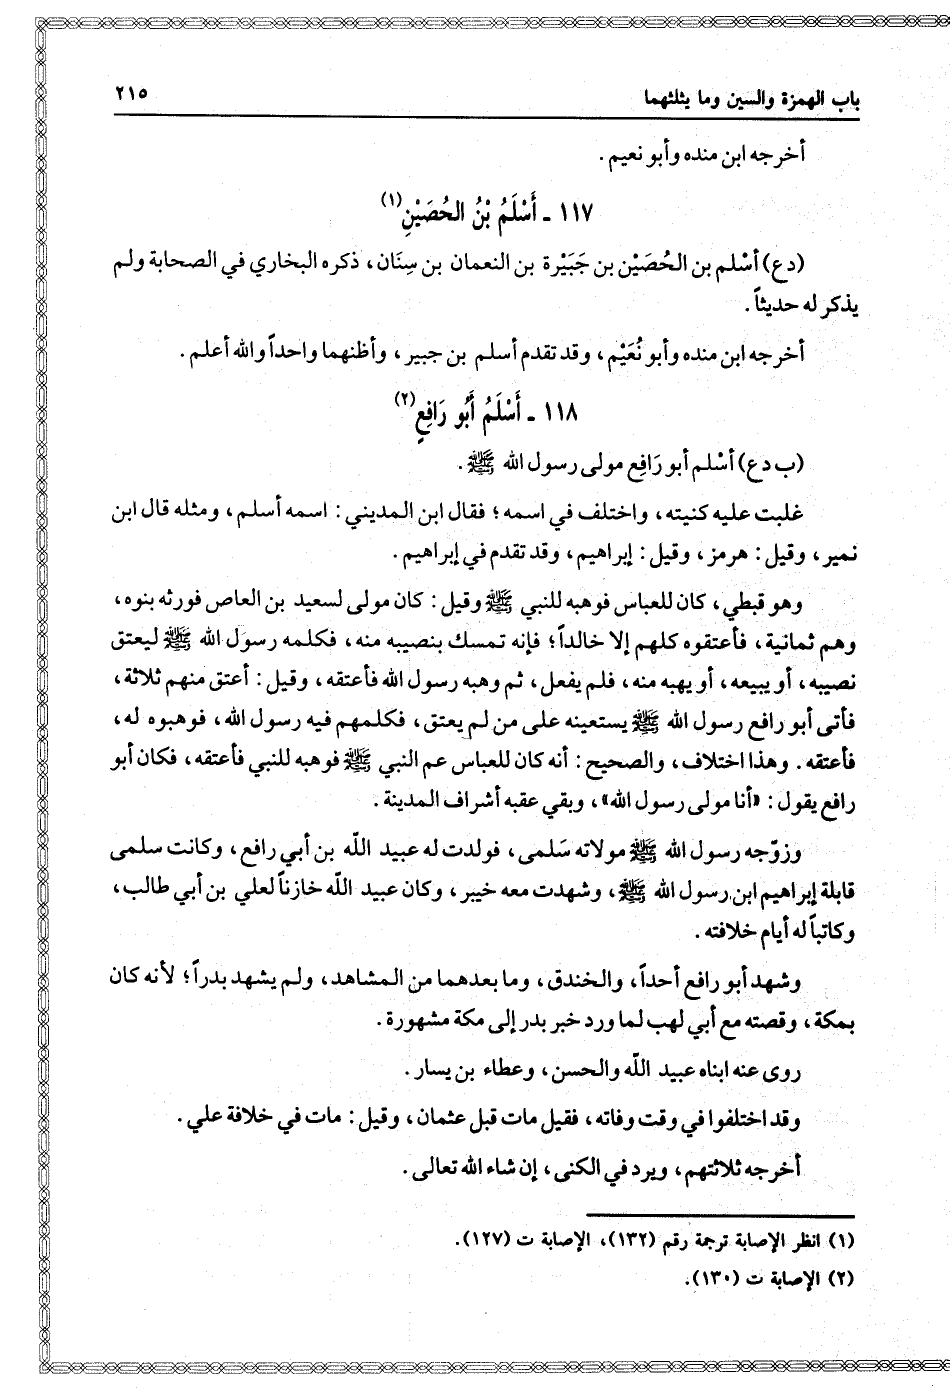 باب الهمزة والسين وما يثلثهما ٢١٥
أخرجه ابن منده وأبو نعيم.
١١٧ ـ أَسْلَمُ بْنُ الحُصَيْنِ(١)
(دع) أسْلم بن الحُصَيْن بن جَبَيْرة بن النعمان بن سِنَان، ذكره البخاري في الصحابة ولم
يذكر له حديثاً.
أخرجه ابن منده وأبو نُعَيْم، وقد تقدم أسلم بن جبير، وأظنهما واحداً والله أعلم.
١١٨ ـ أَسْلَمُ أَبُو رَافِعٍ(٢)
(ب دع) أسْلم أبو رَافِع مولى رسول الله ﷺ.
غلبت عليه كنيته، واختلف في اسمه؛ فقال ابن المديني: اسمه أسلم، ومثله قال ابن
نمير، وقيل: هرمز، وقيل: إبراهيم، وقد تقدم في إبراهيم.
وهو قبطي، كان للعباس فوهبه للنبي ﷺ وقيل: كان مولى لسعيد بن العاص فورثه بنوه،
وهم ثمانية، فأعتقوه كلهم إلا خالداً؛ فإنه تمسك بنصيبه منه، فكلمه رسول الله ﷺ ليعتق
نصيبه، أو يبيعه، أو يهبه منه، فلم يفعل، ثم وهبه رسول الله فأعتقه، وقيل: أعتق منهم ثلاثة،
فأتى أبو رافع رسول الله ﷺ يستعينه على من لم يعتق، فكلمهم فيه رسول الله، فوهبوه له،
فأعتقه. وهذا اختلاف، والصحيح: أنه كان للعباس عم النبي ﷺ فوهبه للنبي فأعتقه، فكان أبو
رافع يقول: «أنا مولى رسول الله»، وبقي عقبه أشراف المدينة.
وزوّجه رسول الله ﷺ مولاته سَلمى، فولدت له عبيد اللّه بن أبي رافع، وكانت سلمى
قابلة إبراهيم ابن رسول الله ﷺ، وشهدت معه خيبر، وكان عبيد اللّه خازناً لعلي بن أبي طالب،
وكاتباً له أيام خلافته.
وشهد أبو رافع أحداً، والخندق، وما بعدهما من المشاهد، ولم يشهد بدراً؛ لأنه كان
بمكة، وقصته مع أبي لهب لما ورد خبر بدر إلى مكة مشهورة.
روى عنه ابناه عبيد اللّه والحسن، وعطاء بن يسار.
وقد اختلفوا في وقت وفاته، فقيل مات قبل عثمان، وقيل: مات في خلافة علي.
أخرجه ثلاثتهم، ويرد في الكنى، إن شاء الله تعالى.
(١) انظر الإصابة ترجمة رقم (١٣٢)، الإصابة ت (١٢٧).
(٢) الإصابة ت (١٣٠).